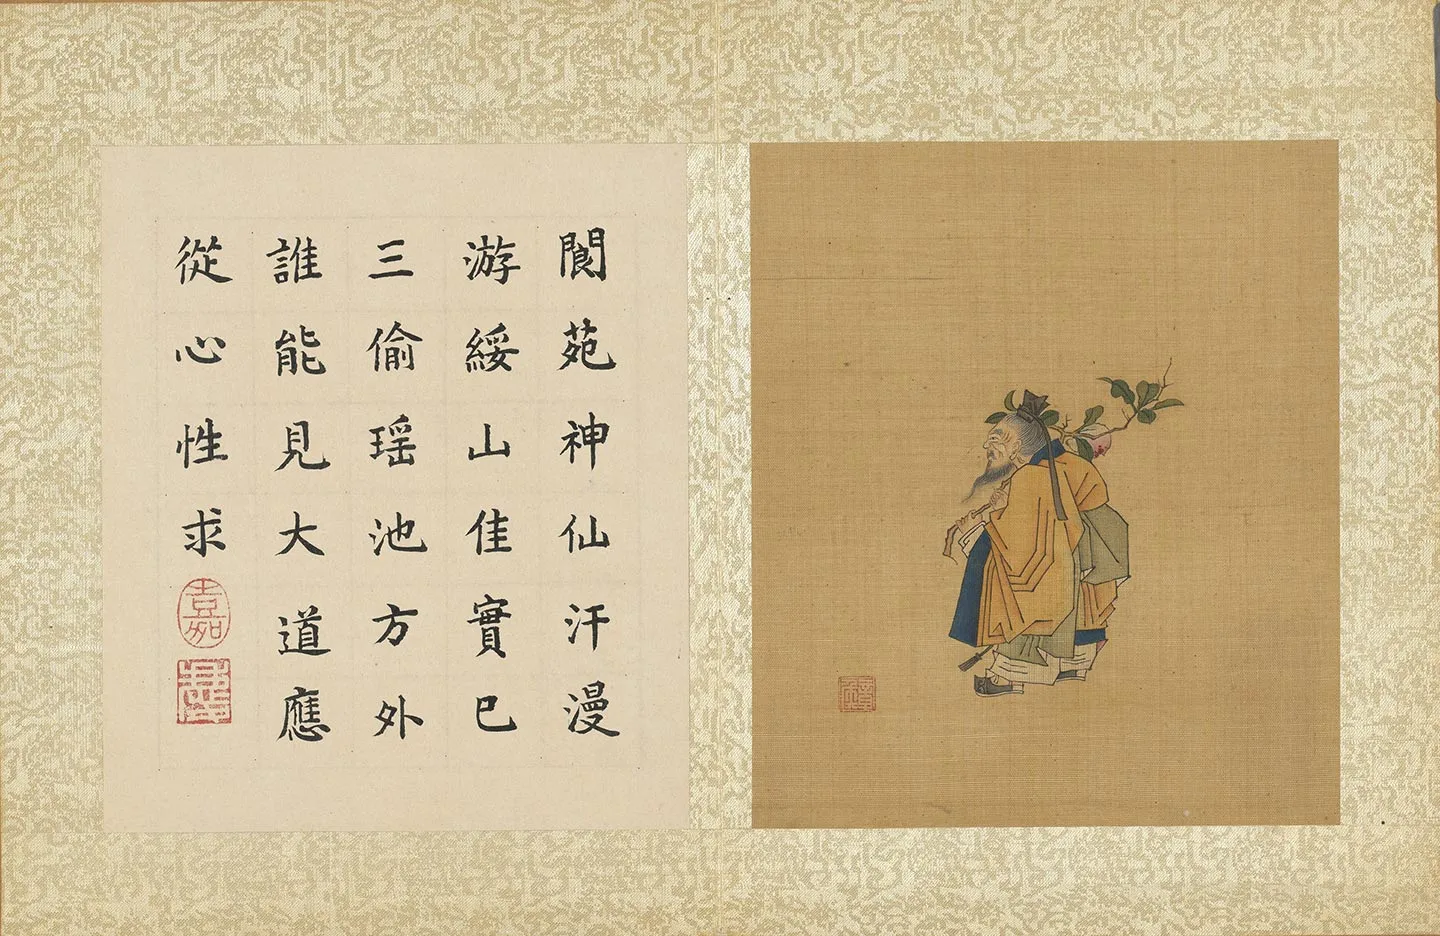 閬苑神仙汗漫
游綏山佳實已
三偷瑤池方外
誰能見大道應
從心性求
嘉